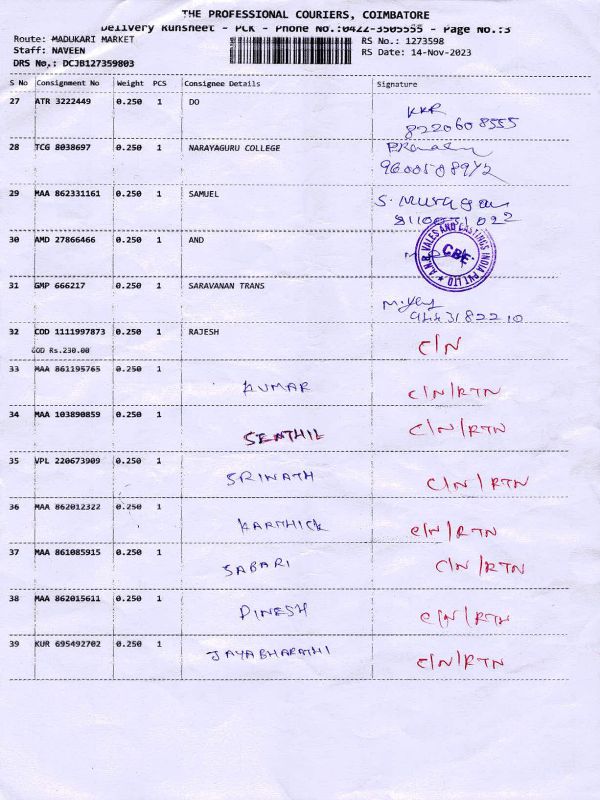 THE PROFESSIONAL COURIERS, COIMBATORE
Delivery Runsheet - PCK - Phone No.:0422-3505555 - Page No.:3
Route: MADUKARI MARKET RS No.: 1273598
Staff: NAVEEN RS Date: 14-Nov-2023
DRS No.: DCJB127359803
S No Consignment No Weight PCS Consignee Details Signature
27 ATR 3222449 0.250 1 DO
KKR
8220608555
28 TCG 8038697 0.250 1 NARAYAGURU COLLEGE
29 MAA 862331161 0.250 1 SAMUEL
S. Murugan
30 AMD 27866466 0.250 1 AND
A.N.R. VALES AND CASTINGS INDIA PVT LTD ★ CBE
31 GMP 666217 0.250 1 SARAVANAN TRANS
32 COD 1111997873 0.250 1 RAJESH C/N
COD Rs.230.00
33 MAA 861195765 0.250 1 KUMAR C/N/RTN
34 MAA 103890859 0.250 1 SENTHIL C/N/RTN
35 VPL 220673909 0.250 1 SRINATH C/N/RTN
36 MAA 862012322 0.250 1 KARTHICK C/N/RTN
37 MAA 861085915 0.250 1 SABARI C/N/RTN
38 MAA 862015611 0.250 1 DINESH C/N/RTN
39 KUR 695492702 0.250 1 JAYABHARATHI C/N/RTN